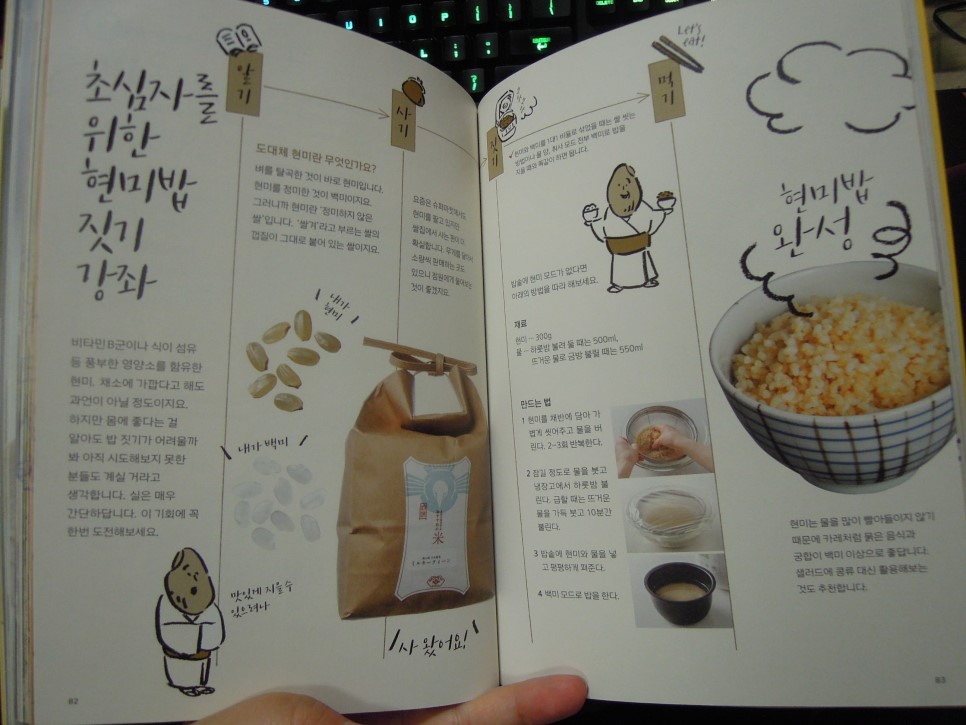 초심자를
위한
현미밥
짓기
강좌
비타민B군이나 식이 섬유
등 풍부한 영양소를 함유한
현미. 채소에 가깝다고 해도
과언이 아닐 정도이지요.
하지만 몸에 좋다는 걸
알아도 밥 짓기가 어려울까
봐 아직 시도해보지 못한
분들도 계실 거라고
생각합니다. 실은 매우
간단하답니다. 이 기회에 꼭
한번 도전해보세요.
맛있게 지을 수
있으려나
82
알기
도대체 현미란 무엇인가요?
벼를 탈곡한 것이 바로 현미입니다.
현미를 정미한 것이 백미이지요.
그러니까 현미란 '정미하지 않은
쌀'입니다. '쌀겨'라고 부르는 쌀의
껍질이 그대로 붙어 있는 쌀이지요.
내가
현미
내가 백미
사기
요즘은 슈퍼마켓에서도
현미를 팔고 있지만
쌀집에서 사는 편이 더
확실합니다. 무게를 달아서
소량씩 판매하는 곳도
있으니 점원에게 물어보는
것이 좋겠지요.
米
사 왔어요!
짓기
현미와 백미를 1대1 비율로 섞었을 때는 쌀 씻는
방법이나 물 양, 취사 모드 전부 백미로 밥을
지을 때와 똑같이 하면 됩니다.
밥솥에 현미 모드가 없다면
아래의 방법을 따라 해보세요.
재료
현미 … 300g
물 … 하룻밤 불려 둘 때는 500ml,
뜨거운 물로 금방 불릴 때는 550ml
만드는 법
1 현미를 채반에 담아 가
볍게 씻어주고 물을 버
린다. 2~3회 반복한다.
2 잠길 정도로 물을 붓고
냉장고에서 하룻밤 불
린다. 급할 때는 뜨거운
물을 가득 붓고 10분간
불린다.
3 밥솥에 현미와 물을 넣
고 평평하게 펴준다.
4 백미 모드로 밥을 한다.
먹기
Let's
eat!
현미밥
완성
현미는 물을 많이 빨아들이지 않기
때문에 카레처럼 묽은 음식과
궁합이 백미 이상으로 좋답니다.
샐러드에 콩류 대신 활용해보는
것도 추천합니다.
83